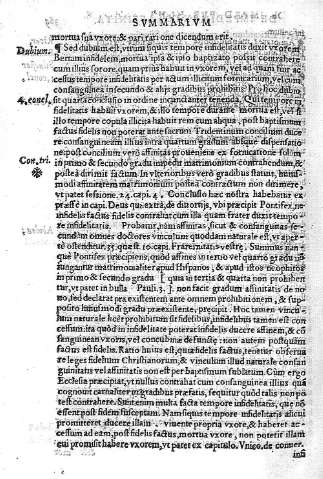 SVMMARIVM
mortua sua vxore, & pari ratione dicendum erit.
Dubium.
¶ Sed dubium est, vtrum si quis tempore infidelitatis duxit vxorem
Bertam infidelem, mortua ipsa & ipso baptizato possit contrahere
cum illius sorore, quam prius habuit in vxorem, vel ad quam
cessus tempore infidelitatis per actum illicitum fornicarium, vel cum
consanguinea in secundo & alijs gradibus prohibitis? Pro hoc dubio
4. concl.
sit quarta conclusio in ordine incunctanter tenenda. Qui tempore in
fidelitatis habuit vxorem, & isto tempore durante mortua est, vel si
illo tempore copula illicita habuit rem cum aliqua, post baptismum
factus fidelis non poterat ante sacrum Tridentinum concilium duce
re consanguineam illius intra quartum gradum absque dispensatio
ne post concilium vero affinitas proueniens ex fornicatione
Con. tri.
in primo & secundo gradu impedit matrimonium contrahendum, &
postea dirimit factum. In vlterioribus vero gradibus statuit, huius
modi affinitatem matrimonium postea contractum non dirimere,
vt patet sessione .24. capi. 4. Conclusio haec nostra habebatur ex
presse in capi. Deus qui extra, de diuortijs, vbi praecipit Pontifex, ne
infidelis factus fidelis contrahat cum illa quam frater duxit tempo
re infidelitatis. Probatur, nam affinitas, sicut & consanguinitas se-
cundum omnes doctores vinculum quoddam naturale est, vt aper
te ostenditur
Pontifices praecipiens, quod affines in tertio vel quarto gradu
iungantur matrimonialiter apud Hispanos, & apud istos neophitos
in primo & secundo gradu [ quia in tertia & quarta non prohiben
tur, vt patet in bulla Pauli. 3. ] non facit gradum affinitatis de no
uo, sed declarat prae existentem ante omnem prohibitionem, & sup-
posito huiusmodi gradu praeexistente, praecipit. Hoc tamen vincu-
lum naturale licet prohibitum sit fidelibus, infidelibus tamen est con
cessum: ita quod in infidelitate poterat infidelis ducere affinem, & co
sanguineam vxoris, vel concubinae defunctae: non autem postquam
factus est fidelis. Ratio huius est, quia fidelis factus, tenetur obserua
re leges fidelium Christianorum, & vinculum illud naturale consan
guinitatis vel affinitatis non est per baptismum sublatum. Cum ergo
Ecclesia praecipiat, vt nullus contrahat cum consanguinea illius quam
cognouit carnaliter in gradibus praefatis, sequitur quod talis non po
test contrahere. Sunt enim multa facta tempore infidelitatis, quae no
essent post fidem susceptam. Nam si quis tempore infidelitatis alicui
promitteret ducere illam, viuente propria vxore, & haberet ac-
cessum ad eam, post fidelis factus, mortua vxore, non poterit illam
cui promisit habere vxorem, vt patet ex capitulo. Vnico, de conuer.
infi